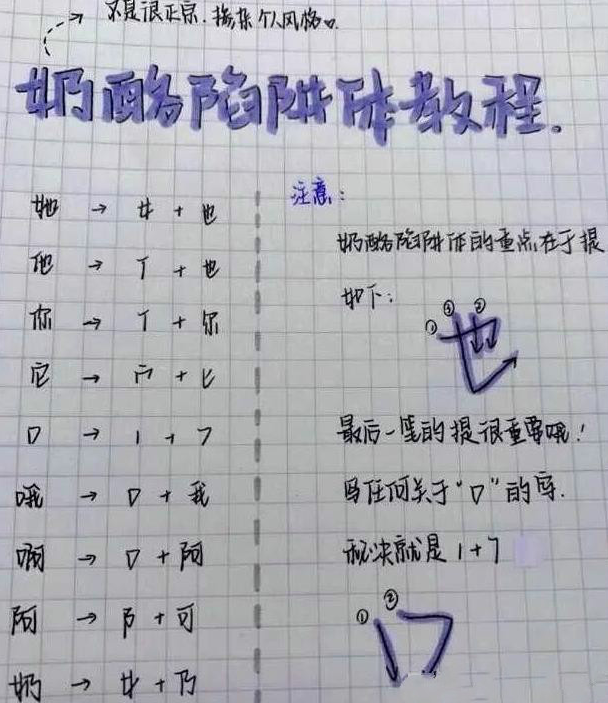 不是很正宗.掺杂个人风格
奶酪陷阱体教程.
她 → 女 + 也
他 → 亻 + 也
你 → 亻 + 尔
它 → 宀 + 匕
口 → 1 + 7
哦 → 口 + 我
啊 → 口 + 阿
阿 → 阝 + 可
奶 → 女 + 乃
注意:
奶酪陷阱体的重点在于提
如下:
① ③ ②
也
最后一笔的提很重要哦!
写任何关于"口"的字.
秘诀就是 1 + 7
① ②
口